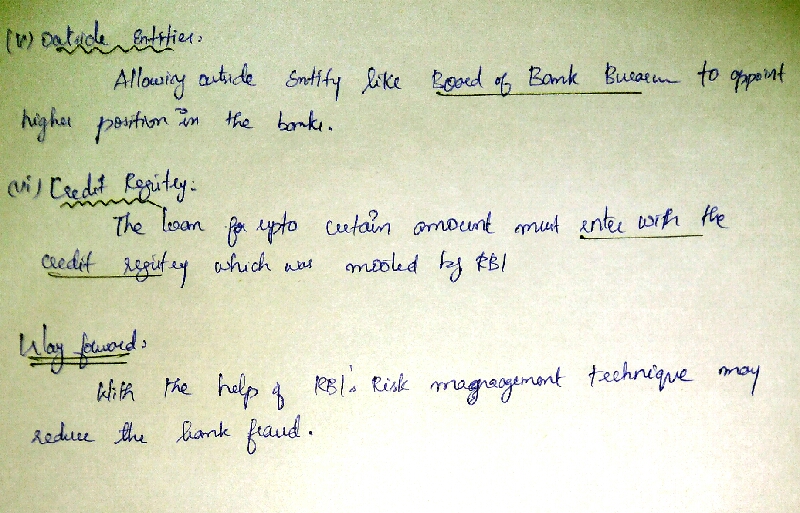 (v) Outside Entities:
Allowing outside Entity like Board of Bank Bureau to appoint
higher position in the banks.
(vi) Credit Registry:
The loan for upto certain amount must enter with the
credit registry which was mooted by RBI
Way forward:
With the help of RBI's Risk magnagement technique may
reduce the bank fraud.